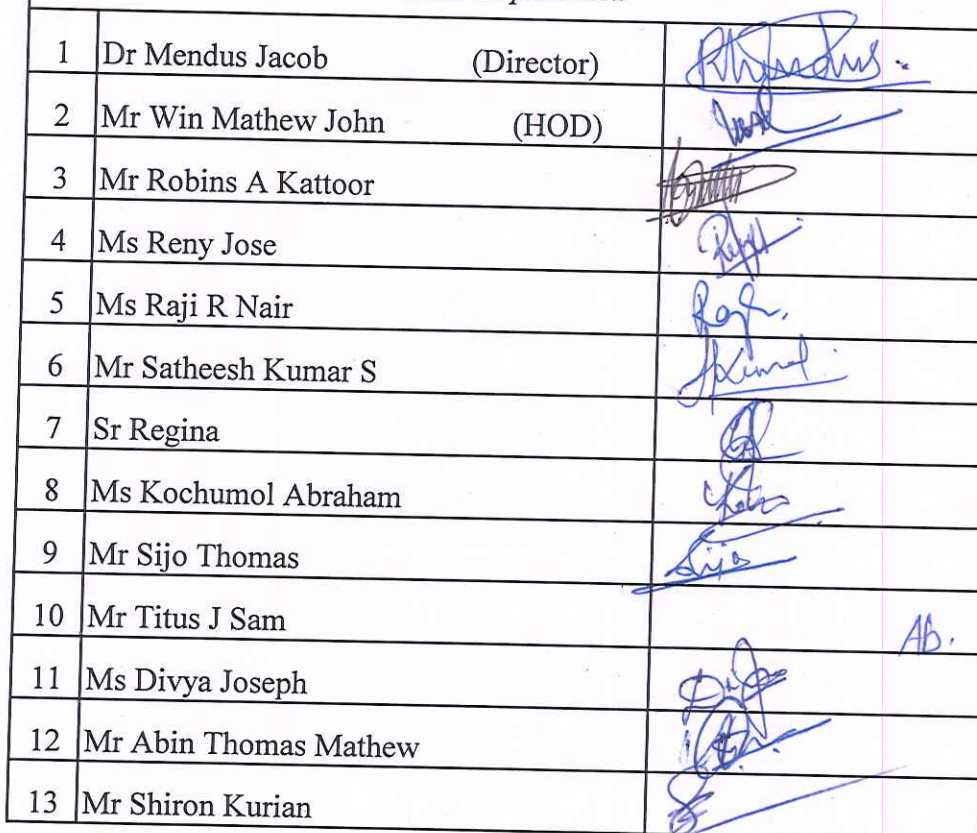 1 Dr Mendus Jacob (Director)
2 Mr Win Mathew John (HOD)
3 Mr Robins A Kattoor
4 Ms Reny Jose
5 Ms Raji R Nair
6 Mr Satheesh Kumar S
7 Sr Regina
8 Ms Kochumol Abraham
9 Mr Sijo Thomas Sijo
10 Mr Titus J Sam Ab.
11 Ms Divya Joseph
12 Mr Abin Thomas Mathew
13 Mr Shiron Kurian